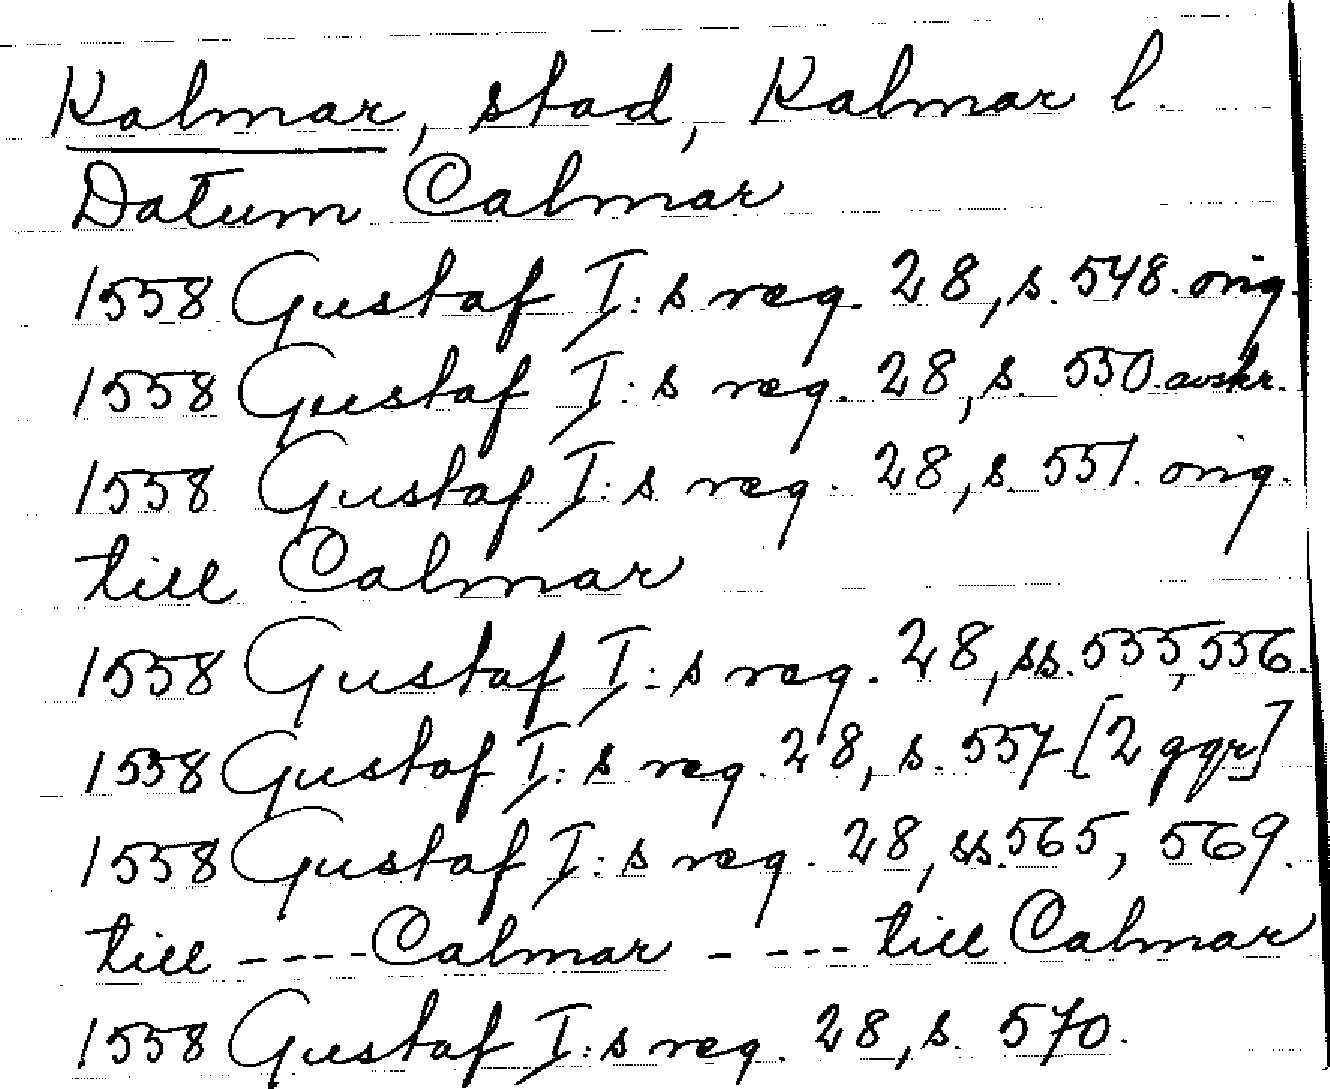 Kalmar, stad, Kalmar l.
Datum Calmar
1558 Gustaf I:s reg. 28, s. 548. orig.
1558 Gustaf I:s reg. 28, s. 550. avskr.
1558 Gustaf I:s reg. 28, s. 551. orig.
till Calmar
1558 Gustaf I:s reg. 28, ss. 555, 556.
1558 Gustaf I:s reg. 28, s. 557 [2 ggr]
1558 Gustaf I:s reg. 28, ss. 565, 569.
till ---- Calmar ---- till Calmar
1558 Gustaf I:s reg. 28, s. 570.